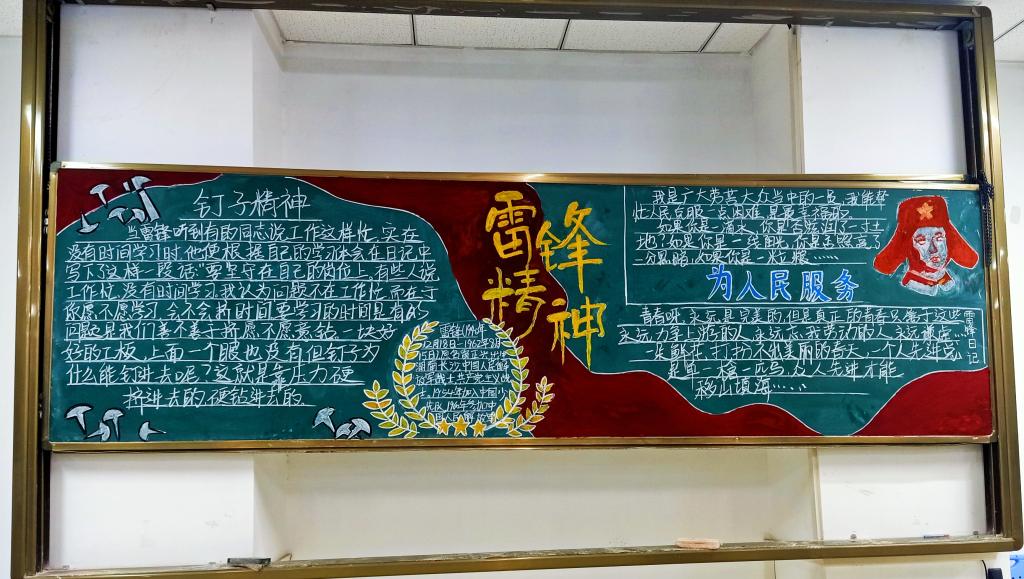 钉子精神
当雷锋听到有的同志说工作这样忙,实在
没有时间学习时,他便根据自己的学习体会在日记中
写下这样一段话"要坚守在自己的岗位上,有些人说
工作忙,没有时间学习,我认为问题不在工作忙,而在于
你愿不愿学习,会不会挤时间,要学习的时间是有的,
问题是我们善不善于挤,愿不愿意钻,一块好
好的木板,上面一个眼也没有,但钉子为
什么能钉进去呢?这就是靠压力硬
挤进去的,硬钻进去的
雷锋精神
雷锋(1940年
12月18日-1962年8月
15日)原名雷正兴,出生
湖南长沙,中国人民解
放军战士,共产主义战
士,1954年加入中国少
先队,1960年参加中
国人民解放军
我是广大劳苦大众当中的一员,我能帮
忙人民克服一点困难,是最幸福的
如果你是一滴水,你是否滋润了一寸土
地?如果你是一线阳光,你是否照亮了
一分黑暗,如果你是一粒粮……
为人民服务
青春呀,永远是美的,但是真正的青春只属于这些
永远力争上游的人,永远忘我劳动的人,永远谦虚
一朵鲜花打扮不出美丽的春天,一个人先进总
是单一枪一匹马,众人先进才能
移山填海……
雷锋日记